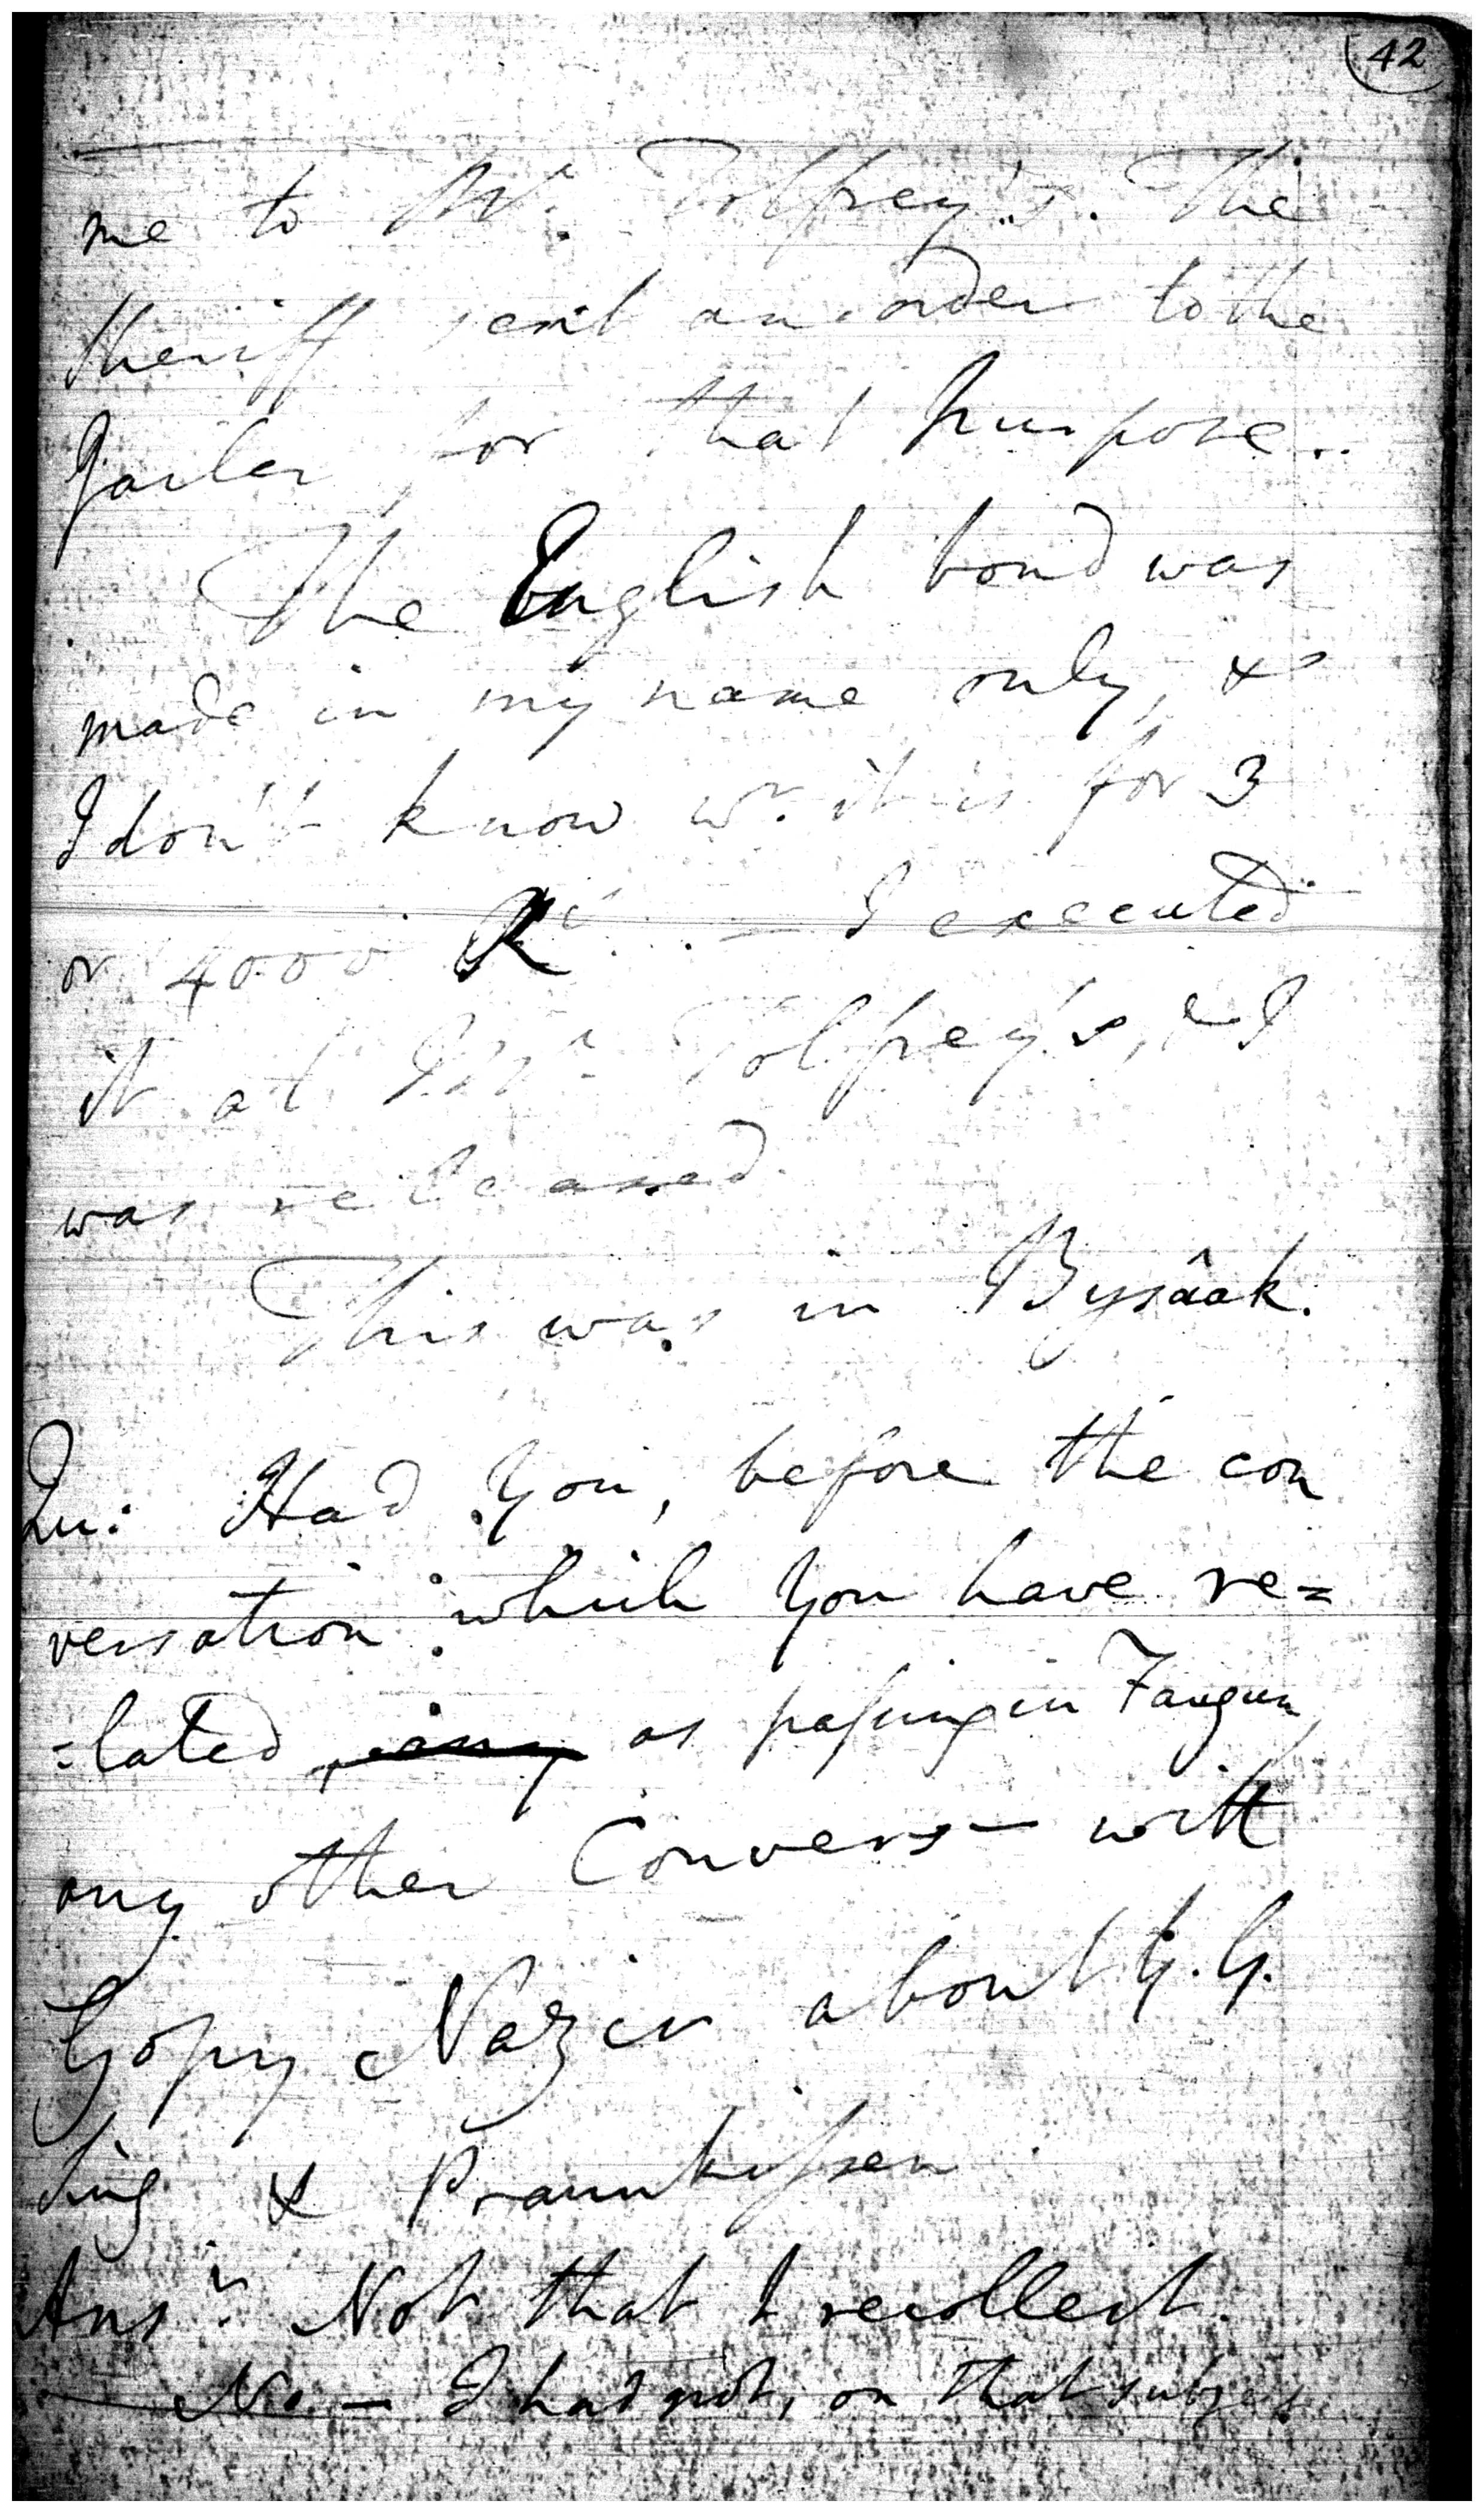 42
me to Mr. Tolfrey's. The
Sheriff sent an order to the
Gaoler for that Purpose..
The English bond was
made in my name only, &
I don't know wr. it is for 3
or 4000 Rs. — I executed
it at Mr. Tolfrey's, & I
was released.
This was in Bysâak.
Qu: Had You, before the con
versation which You have re=
=lated, any as passing in Faugun,
any other Convers— with
Gopy Nazir about G. G.
Sing & Praunkissen
Ansr. Not that I recollect.
— No. — I had not, on that subject